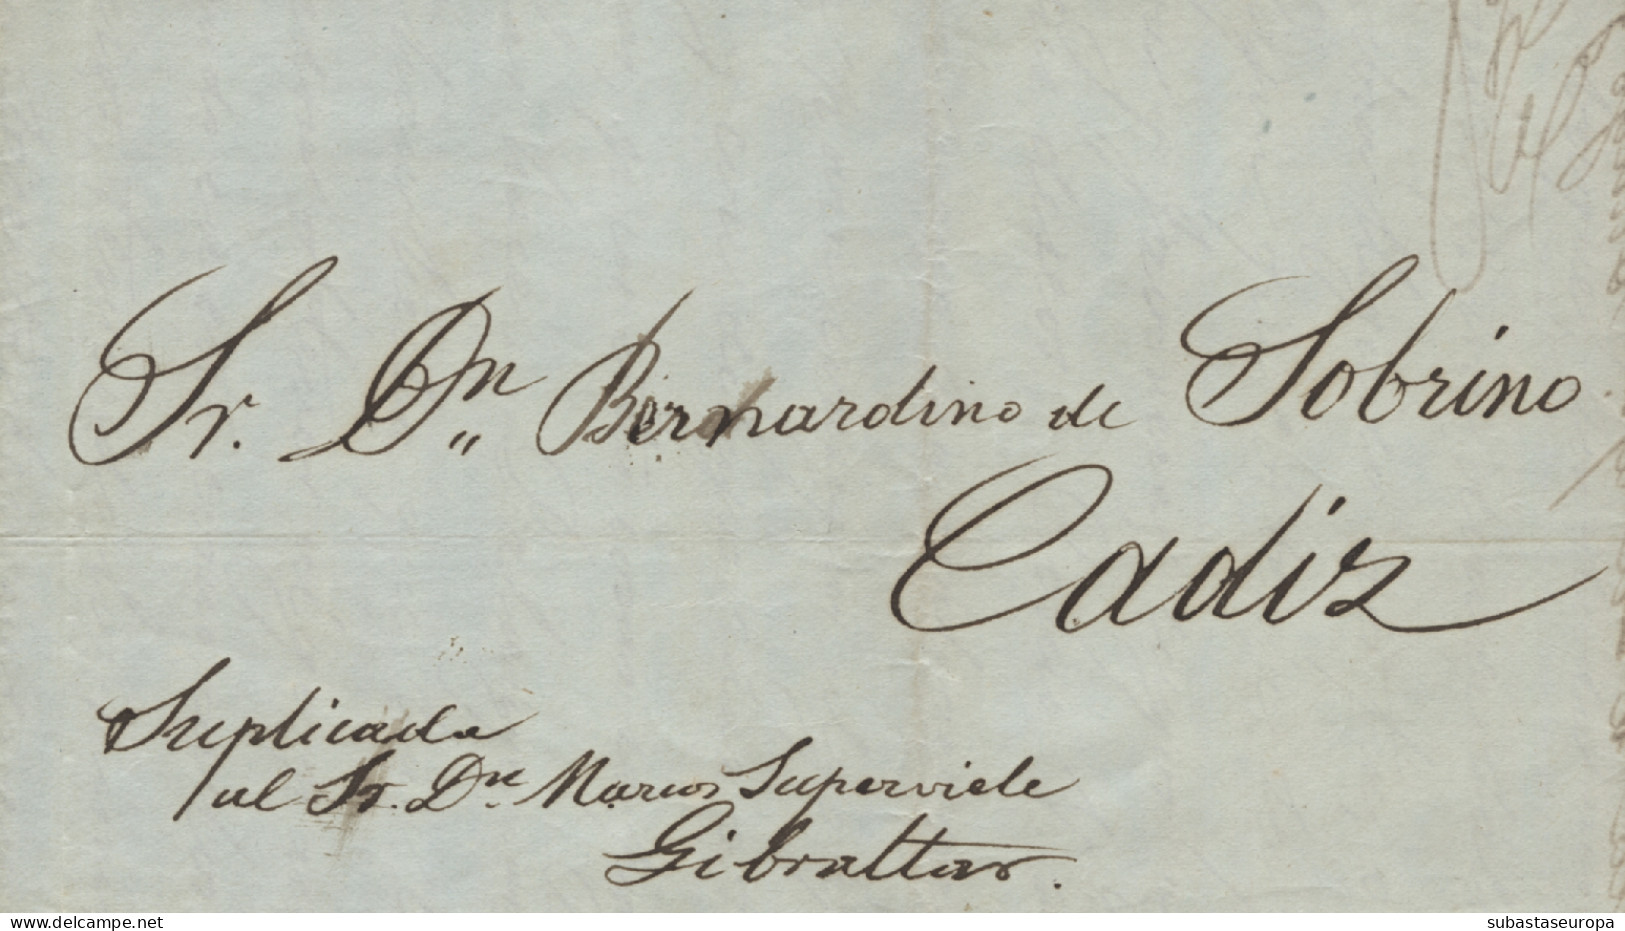 Sr. Dn Bernardino de Sobrino
Cadiz
Suplicada
al Sr. Dn Marcos Superviele
Gibraltar.
www.delcampe.net
subastaseuropa